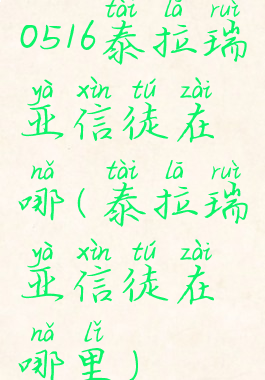 tài lā ruì
0516泰拉瑞
yà xìn tú zài
亚信徒在
nǎ tài lā ruì
哪(泰拉瑞
yà xìn tú zài
亚信徒在
nǎ lǐ
哪里)